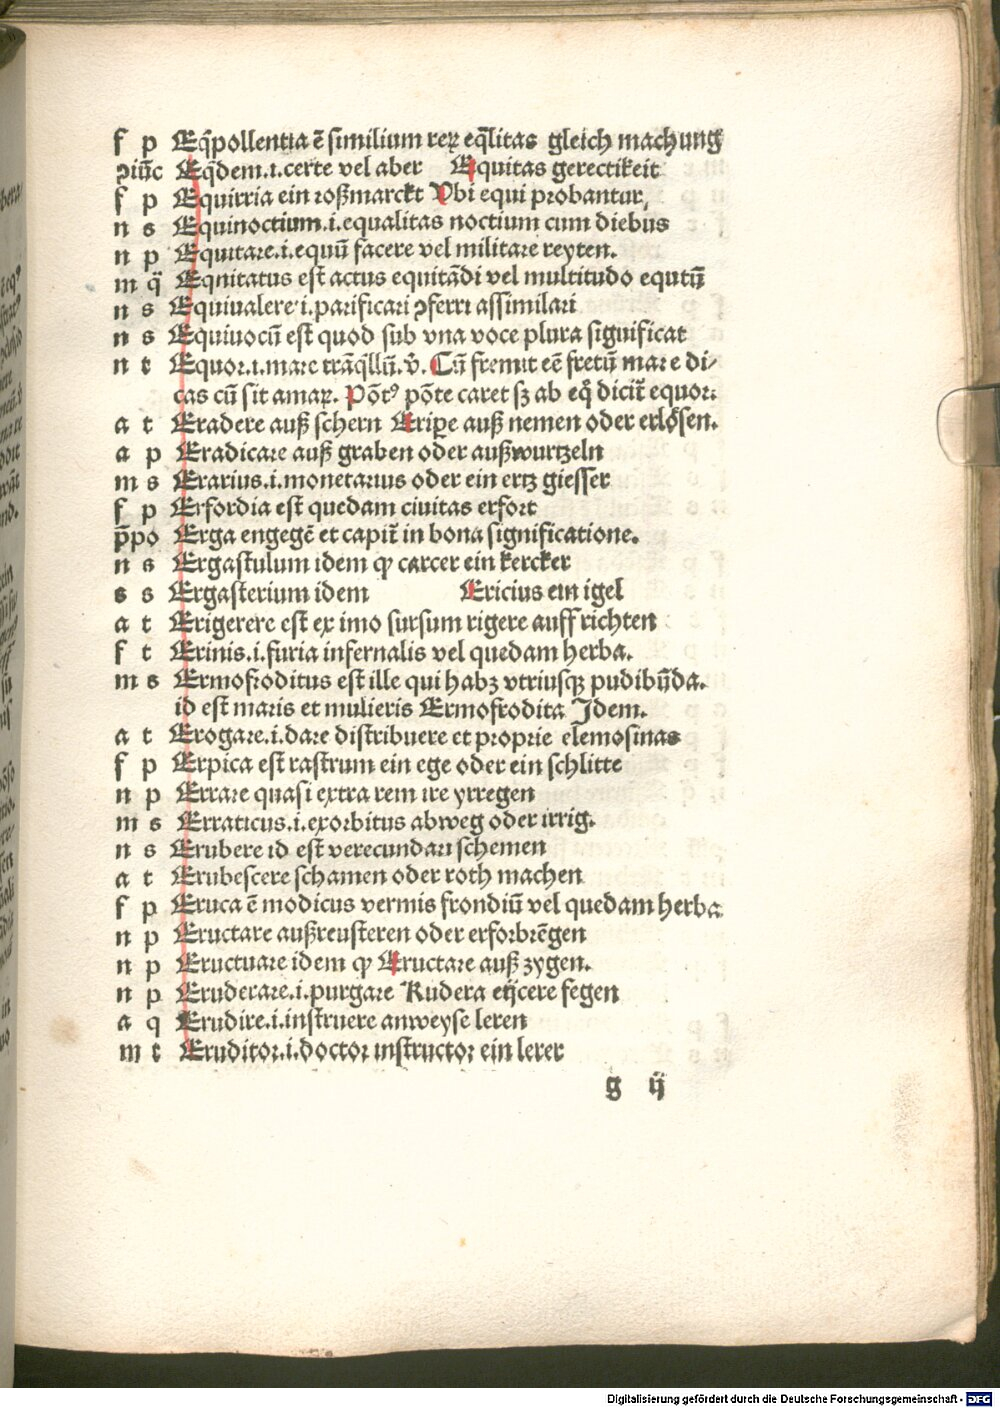 f p Eq̃pollentia ē similium reꝝ eq̃litas gleich machung
ↄiũc Eq̃dem.i.certe vel aber Equitas gerectikeit
f p Equirria ein roßmarckt Vbi equi probantur,
n s Equinoctium.i.equalitas noctium cum diebus
n p Equitare.i.equũ facere vel militare reyten.
m q̈ Eqnitatus est actus equitãdi vel multitudo equtũ
n s Equiualere i.parificari ↄferri assimilari
n s Equiuocũ est quod sub vna voce plura significat
n t Equor.i.mare trãq̃llũ.v̉. Cũ fremit eẽ fretũ mare di⸗
cas cũ sit amaꝝ. Põtꝰ põte caret sꝫ ab eq̃ dicit̃ equor.
a t Eradere auß schern Eripe auß nemen oder erlösen.
a p Eradicare auß graben oder außwurtzeln
m s Erarius.i.monetarius oder ein ertz giesser
f p Erfordia est quedam ciuitas erfort
p̄po Erga engegẽ et capit̃ in bona significatione.
n s Ergastulum idem ꝙ carcer ein kercker
s s Ergasterium idem Ericius ein igel
a t Erigerere est ex imo sursum rigere auff richten
f t Erinis.i.furia infernalis vel quedam herba.
m s Ermofroditus est ille qui habꝫ vtriusqꝫ pudibũda.
id est maris et mulieris Ermofrodita Idem.
a t Erogare.i.dare distribuere et proprie elemosinas
f p Erpica est rastrum ein ege oder ein schlitte
n p Errare quasi extra rem ire yrregen
m s Erraticus.i.exorbitus abweg oder irrig.
n s Erubere id est verecundari schemen
a t Erubescere schamen oder roth machen
f p Eruca ẽ modicus vermis frondiũ vel quedam herba
n p Eructare außreusteren oder erforbrẽgen
n p Eructuare idem ꝙ Eructare auß zygen.
n p Eruderare.i.purgare Rudera eijcere fegen
a q Erudire.i.instruere anweyse leren
m t Eruditor.i.doctor instructor ein lerer
g ij
Digitalisierung gefördert durch die Deutsche Forschungsgemeinschaft - DFG